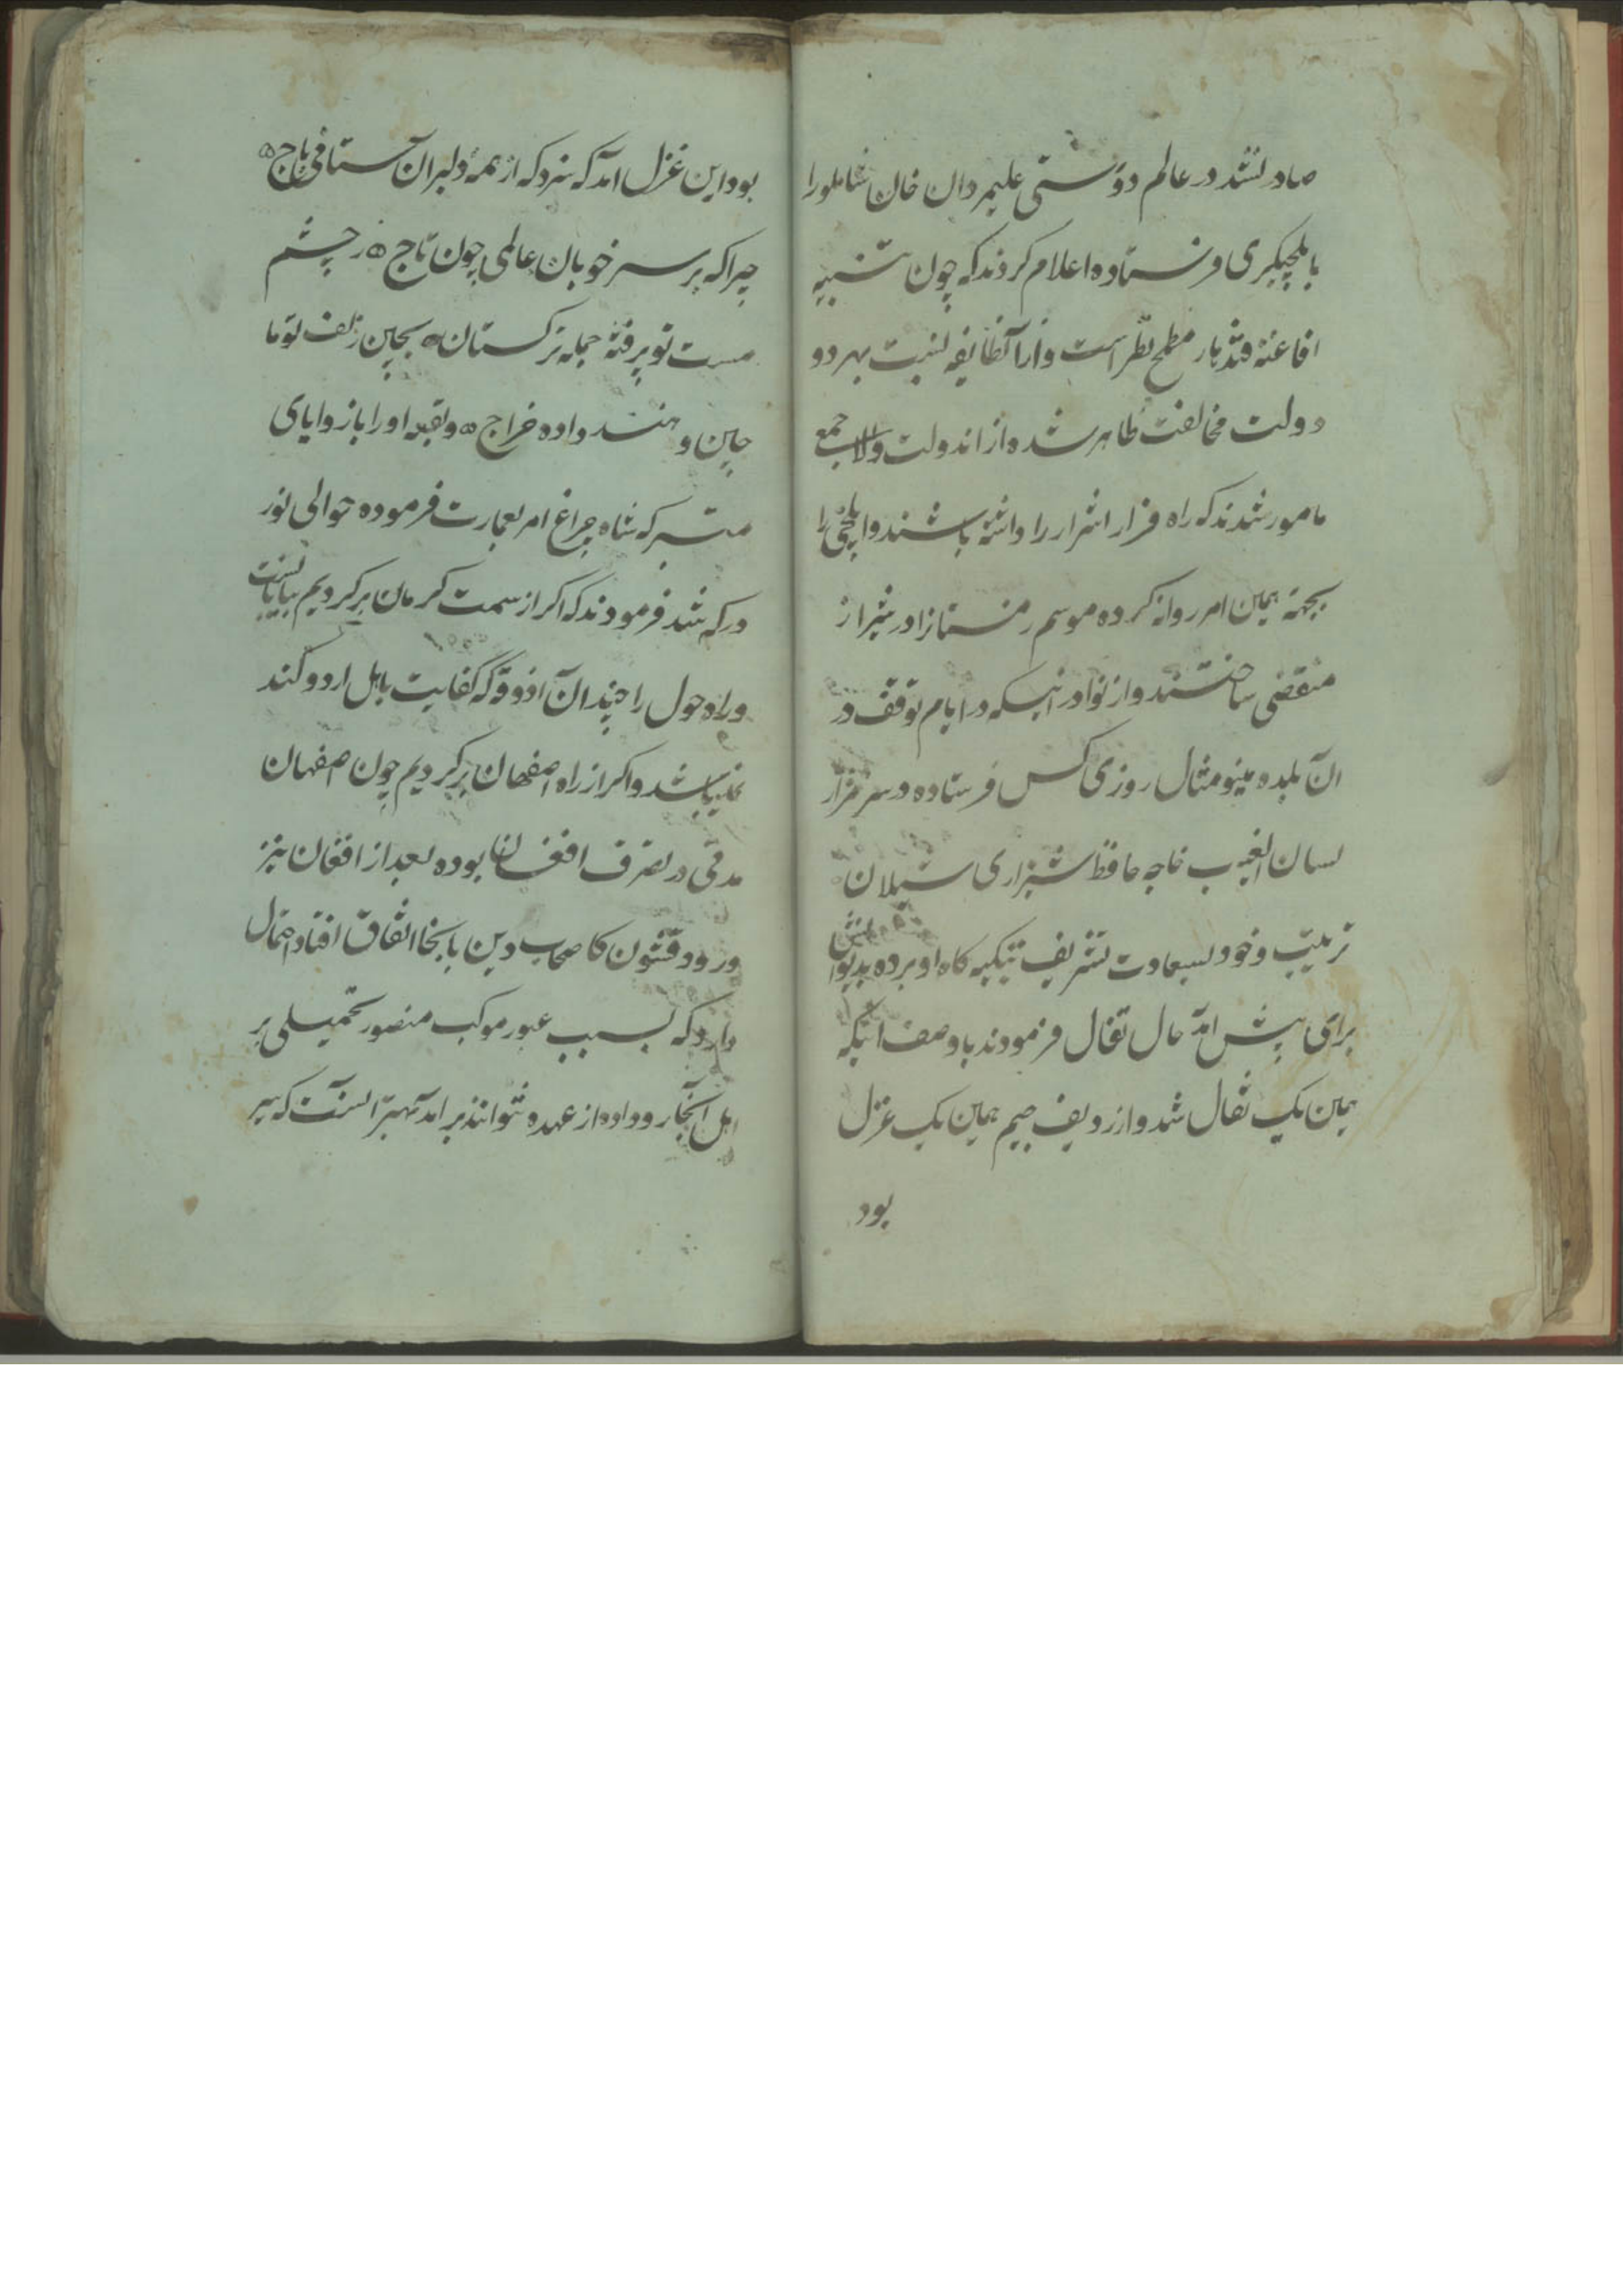 صادر نشد در عالم دوستی علیمردان خان شاملورا
بایلچیکری فرستاده اعلام کردند که چون تنبیه
افاغنه قندهار مطمح نظر است و از آنطایفه نسبت بهر دو
دولت مخالفت ظاهر شده از اندولت والا جمع
مامور شدند که راه فرار اشرار را داشته باشند و ایلچی را
بجهة همین امر روانه کرده موسم زمستانرا در شیراز
منقضی ساختند و از نوادر اینکه در ایام توقف در
ان بلده مینو مثال روزی کس فرستاده در سر مزار
لسان الغیب خاجه حافظ شیرازی شیلان
ترتیب و خود بسعادت تشریف بتکیه کاه او برده بدیوانش
برای پیش امد حال تفال فرمودند با وصف اینکه
همین یک تفال شد و از ردیف جیم همین یک غزل
بود
بود این غزل امد که سزد که از همه دلبران ستانی باج
چرا که بر سر خوبان عالمی چون تاج دو چشم
مست تو پر فتنه جمله ترکستان بچین زلف تو ما
چین و هند داده خراج و بقعه او را با زوایای
متبرکه شاه چراغ امر بعمارت فرموده حوالی نور
در که شد فرمودند که اکر از سمت کرمان برکردیم بیابانست
و راه حول را چندان آذوقه که کفایت باهل اردو کند
نمیباشد و اکر از راه اصفهان برکردیم چون اصفهان
مدتی در تصرف افغان بوده بعد از افغان نیز
ورود قشون کا صحاب دین بانجا اتفاق افتاد احتمال
دارد که بسبب عبور موکب منصور تحمیلی بر
اهل آنجا رو داده از عهده نتوانند بر امد بهتر انست که بیر